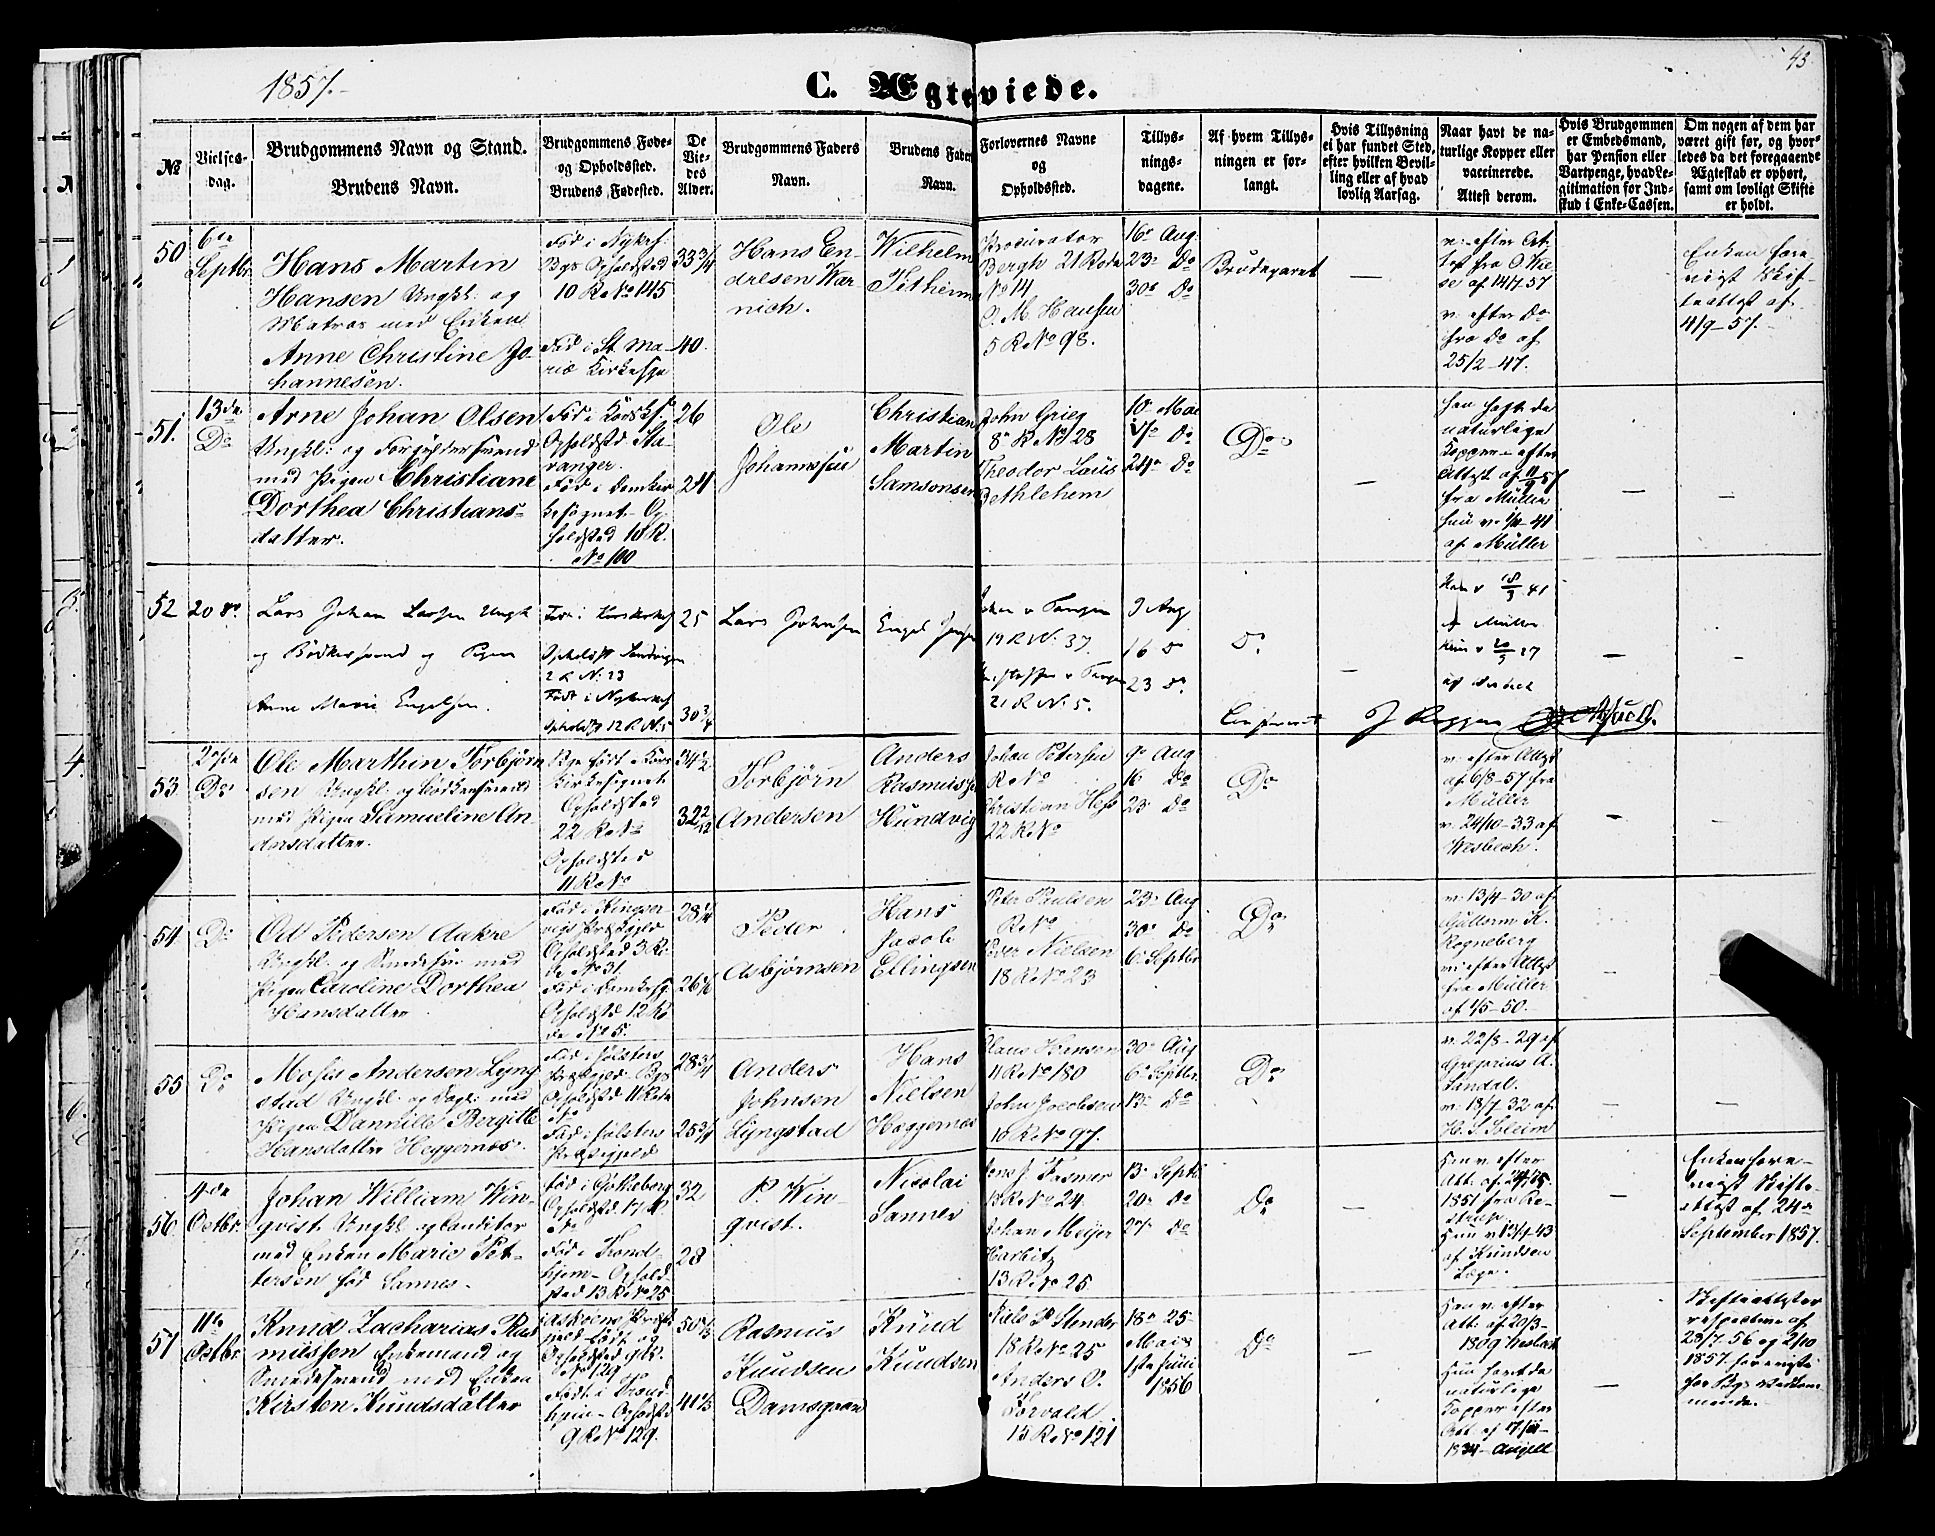 1857.-
C. Ægteviede.
43
№
Vielses-
dag.
Brudgommens Navn og Stand.
Brudens Navn.
Brudgommens Føde-
og Opholdssted.
Brudens Fødested.
De
Vie-
des
Alder.
Brudgommens Faders
Navn.
Brudens Faders
Navn.
Forlovernes Navne
og
Opholdssted.
Tillys-
nings-
dagene.
Af hvem Tillys-
ningen er for-
langt.
Hvis Tillysning
ei har fundet Sted,
efter hvilken Bevil-
ling eller af hvad
lovlig Aarsag.
Naar havt de na-
turlige Kopper eller
vaccinerede.
Attest derom.
Hvis Brudgommen
er Embedsmand,
har Pension eller
Vartpenge, hvad Le-
gitimation for Ind-
skud i Enke-Cassen.
Om nogen af dem har
været gift før, og hvor-
ledes da det foregaaende
Ægteskab er ophørt,
samt om lovligt Skifte
er holdt.
50
6te
Septbr.
Hans Martin
Hansen Ungkl: og
Matros med Enken
Anne Christine Jo-
hannesen.
Fød i Nykrk:
Bgs Opholdsted
10 R. No 145
Fød i St. Ma-
riæ Kirkesg
33 3/4
40.
Hans En-
dresen War-
nich.
Wilhelm
Procurator
Bergh 21 Rode
No 14
O. M. Hansen
5 R No 98.
16de Aug.
23 Do
30 Do
Brudeparret
—
v. efter At-
test fra
af 14/7 57
v. efter Do
fra Do af
25/2-47.
Enken fore-
viist Skif-
teattest af
4/9-57.
51.
13de
Do
Arne Johan Olsen
Ungkl: og Forgyldersvend
med Pigen Christiane
Dorthea Christians-
datter.
Fød i Korskf.
Opholdsted Sta-
vanger.
Fød i Domkir-
kesognet - Op-
holdsted 10 R.
No 100
26
24
Ole
Johannesen
Christian
Martin
Samsonsen
John Grieg
8 R No 28
Theodor Laüs
Bethlehem
10 Mai
17 Do
24 Do
Do
—
han havt de
naturlige
Kopper efter
Attest af
fra Müller
hun v.
af Müller
—
—
52
20 Do
Lars Johan Larsen Ungk
og Bødkersvend og Pigen
Anne Marie Engelsen.
Fød i Korskirkes
Opholdst Sandvigen
2 R N: 23
Født i Nykirkes
opholdst 12 R N: 5
25
30 3/4
Lars Johnsen
Engel Jensen
19 R N: 37.
21 R N: 5.
9 Aug
16 Do
23 Do
Do
—
Han v 18/9 41
af Müller
Hun v 20/9 27
—
—
53
20de
Do
Ole Marthin Torbjørn-
sen Ungkl: og Bødkersvend
med Pigen Samueline An-
dersdatter.
Bge født i Kors
Kirkesognet
Opholdsted
22 R. No
Opholdsted
11 R No
34 1/2
32 2/12
Torbjørn
Andersen
Anders
Rasmussen
Hundvig
Johan Petersen
R. No
Christian Hess
22 R. No
9 Aug
16 Do
23 Do
Do
v. efter Attest
af 6/8-57 fra
Müller
v. 24/10-33 af
Wesbech.
—
—
54
Do
Od Pedersen Aakre
Ungkl: og Smedesv: med
Pigen Caroline Dorthea
Hansdatter
Fød i Kingser-
vigs Præstegjeld
Opholdsted 3 Ro-
de No 31.
Fød i Domkirkesg.
Opholdsted 12 Ro
de No 5.
28 1/4
26 1/6
Peder
Asbjørnsen
Hans
Jacob
Ellingsen
Peter Paulsen
R. No
Peder Nielsen
18 R. No 23
23 Aug
30 Do
6 Septbr
Do
v: 13/4-30 af
Guttorm K.
Rogneberg
v: efter Attest
fra Müller
af 1/5-50.
—
—
55
Do
Moses Andersen Lyng-
stad Ungkl: og Dagl: med
Pigen Dannille Bergitte
Hansdatter Heggernæs.
Fød i Jølsters
Præstegjeld - Bgs
Opholdsted 11 Rode
No
Fød i Jølsters
Præstegjeld
28 3/4
25 3/4
Anders
Johnsen
Lyngstad
Hans
Nielsen
Heggernæs
Claus Hansen
11 R. No 180
John Jacobsen
18 R. No 97.
30 Aug
6 Septbr
13 Do
Do
v. 22/8-29 af
Gregorius A.
Sandal.
v. 18/7 32 af
H. S. Soleim
—
—
56
4de
Octbr.
Johan William Win-
qvist Ungkl og Conditor
med Enken Marie Pet-
tersen fød Sannes.
Fød i Gøteborg
Opholdsted 17 R
No
Fød i Trond-
hjem - Ophold-
sted 13 R. No 25
32
28
P. Win-
qvist.
Nicolai
Sannes
Jens J. Kasmer
13 R. No 24
Johan Meyer
Harbitz
13 R. No 25
13 Septb
20 Do
27 Do
Do
—
Han v. efter
Att. af
1851 fra
Hun v 13/9-43
af Knudsen
Læge.
—
Enken fore-
viist Skifte-
attest af 24de
September 1857.
57
11te
Octbr.
Knud Zacharias Ras-
mussen Enkemand og
Smedesvend med Enken
Kirsten Knudsdatter
Askøens Præst
gjeld - født og
Opholdsted 9 R.
No 129
Født i Trond-
hjem - Opholdsted
9 R. No 129.
50 1/3
41 1/3
Rasmus
Knudsen
Damsgaard
Knud
Knudsen
Niels P. Stender
18 R. No 25
Anders O.
Torvald
15 R. No 121
18 25
Mai
1ste Juni
1856
Do
—
Han v. efter
Att. af 20/3-
1809
Hun havt de
naturlige
Kopper efter
Att. af
1834 - Angell
—
Skifteattester
respective af
23/7 56 og 2/10
1857 foreviist
for Bgs vedkom-
mende.